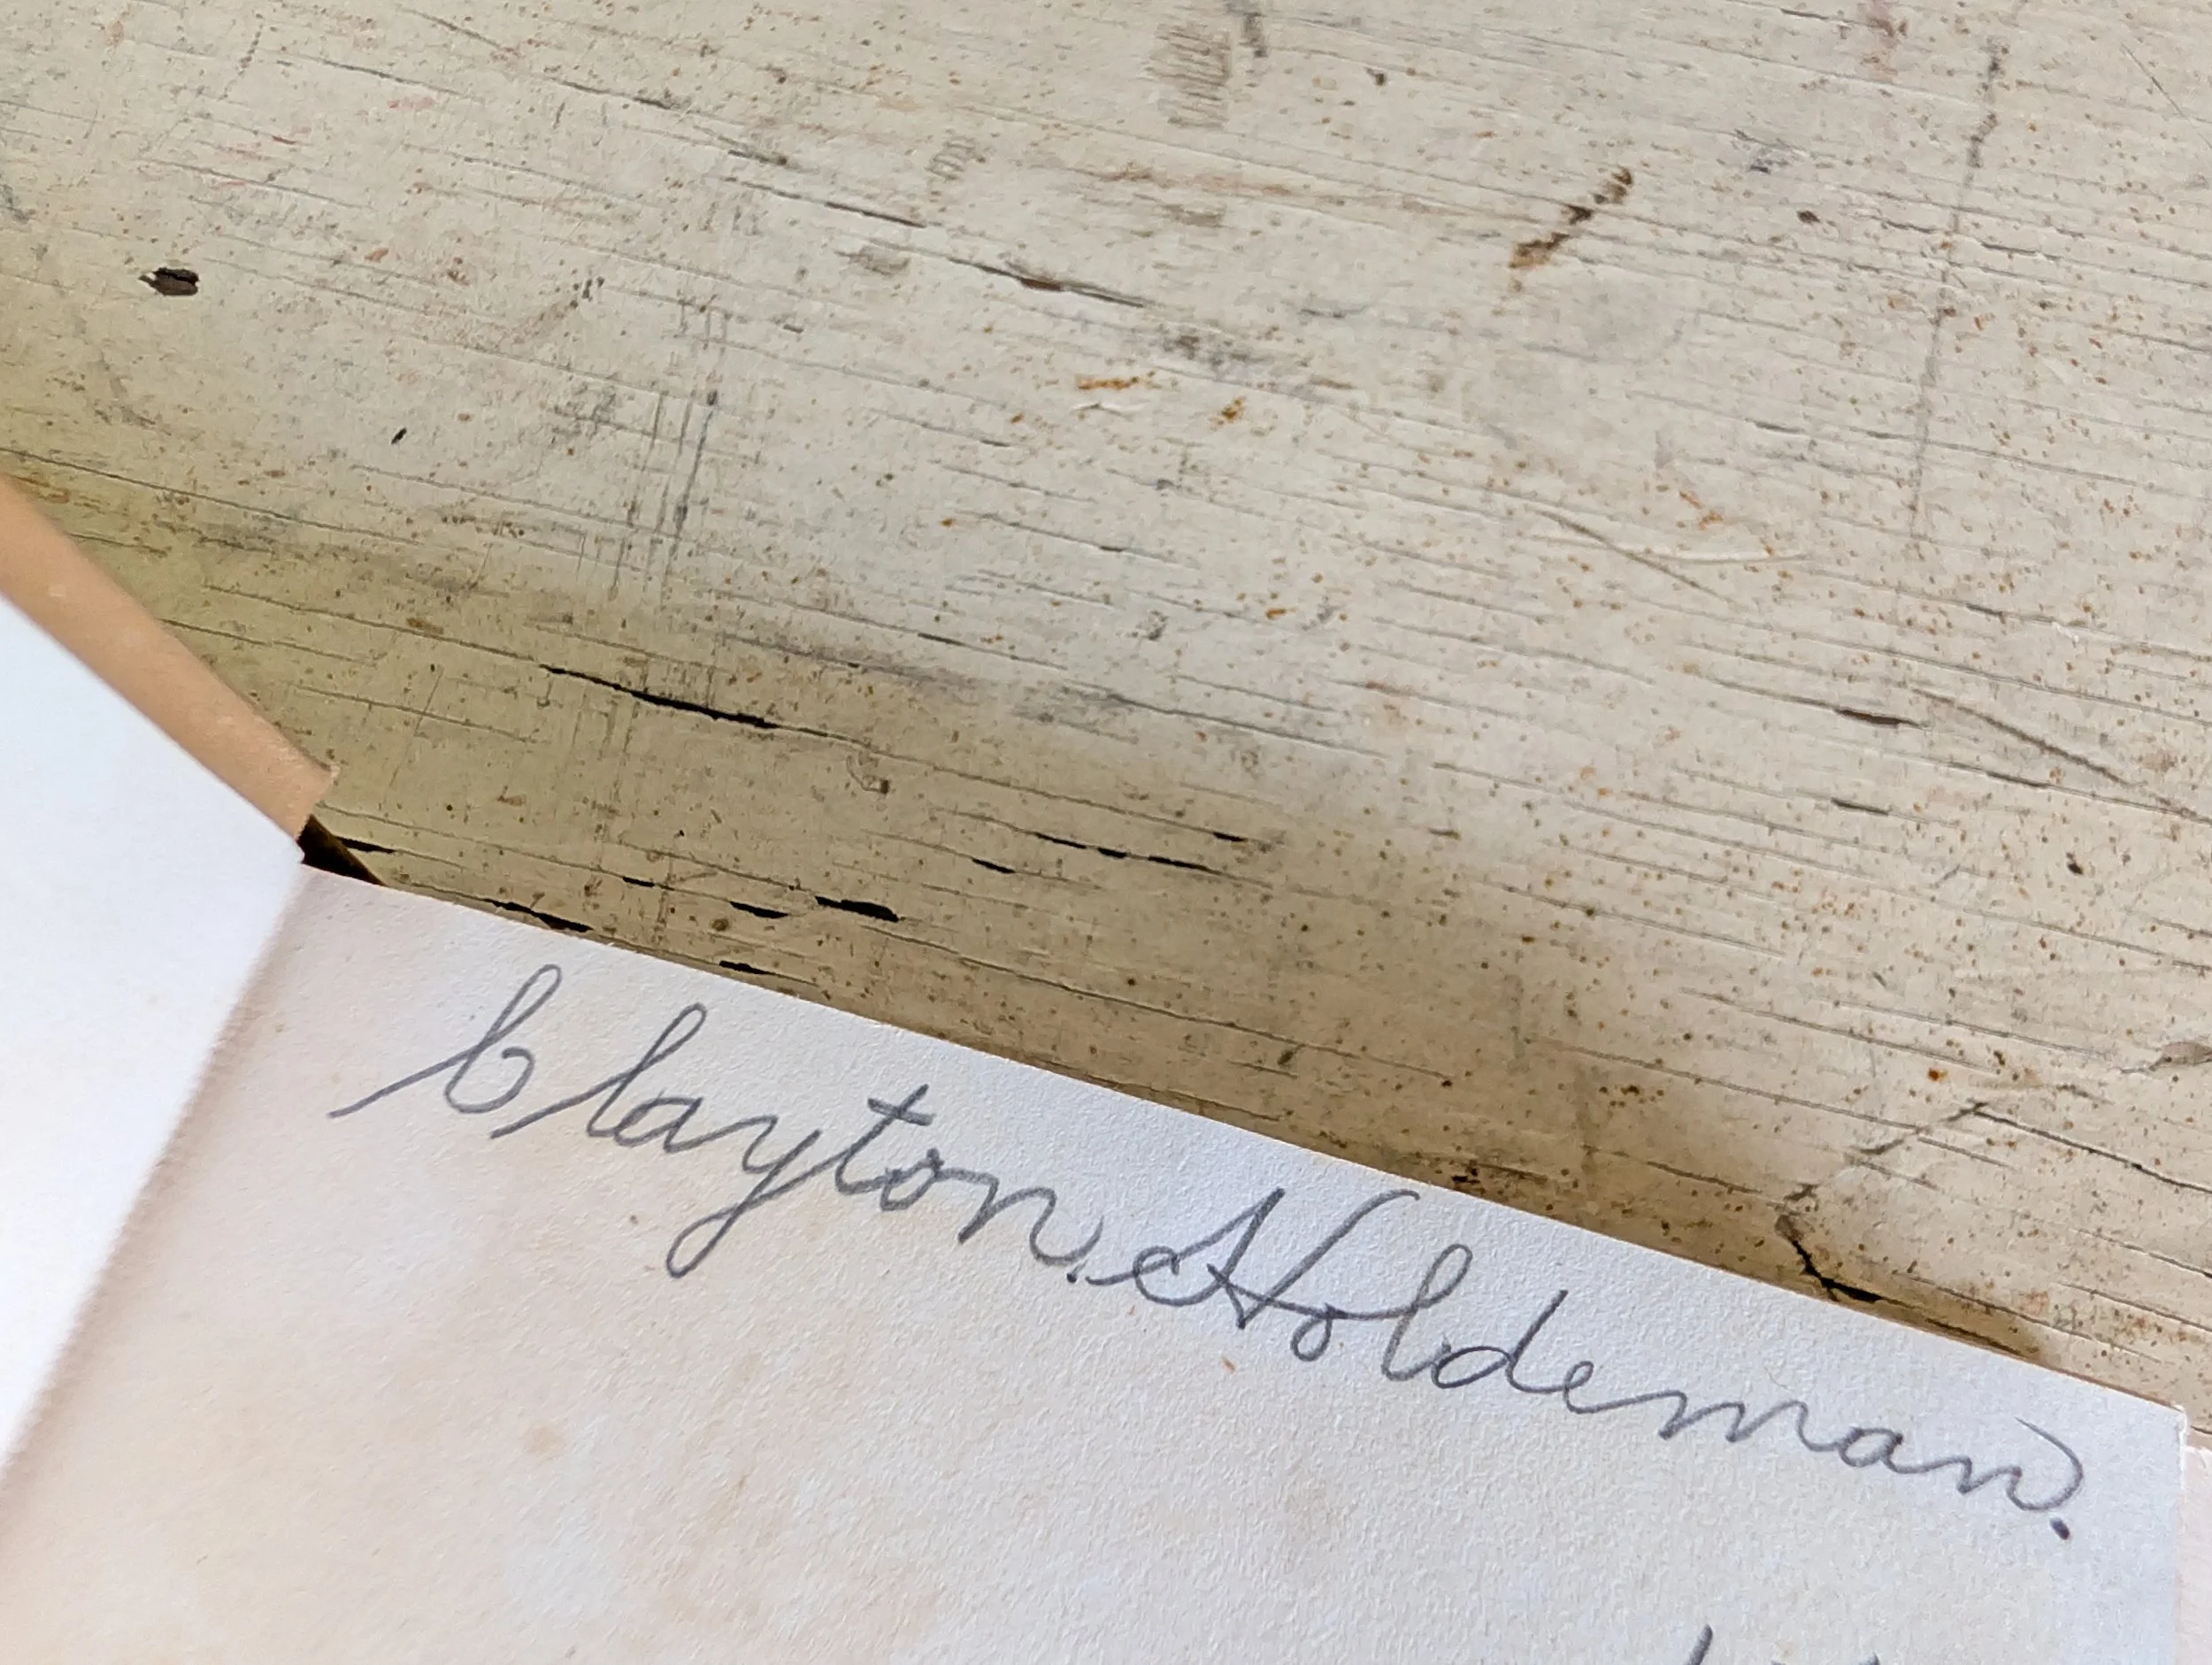 Clayton. Holdeman.